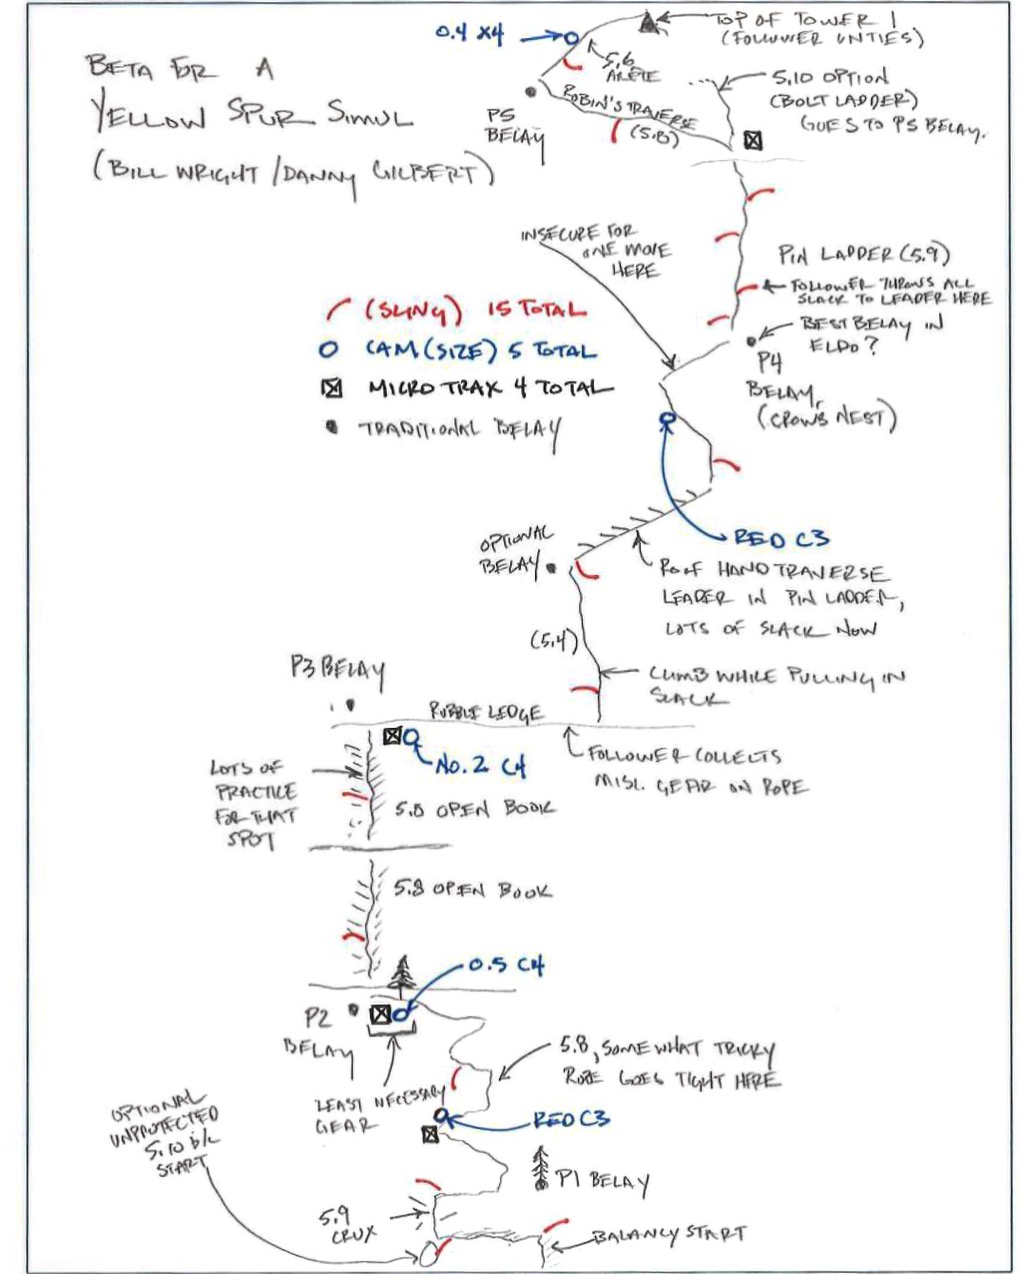 BETA FOR A
YELLOW SPUR SIMUL
(BILL WRIGHT / DANNY GILBERT)
0.4 X4
TOP OF TOWER 1
(FOLLOWER UNTIES)
5.6
ARETE
P5
BELAY
ROBIN'S TRAVERSE
(5.8)
5.10 OPTION
(BOLT LADDER)
GOES TO P5 BELAY.
INSECURE FOR
ONE MOVE
HERE
PIN LADDER (5.9)
FOLLOWER THROWS ALL
SLACK TO LEADER HERE
BEST BELAY IN
ELDO?
P4
BELAY,
(CROWS NEST)
(SLING) 15 TOTAL
CAM (SIZE) 5 TOTAL
MICRO TRAX 4 TOTAL
TRADITIONAL BELAY
RED C3
OPTIONAL
BELAY
ROOF HAND TRAVERSE
LEADER IN PIN LADDER,
LOTS OF SLACK NOW
(5.4)
CLIMB WHILE PULLING IN
SLACK
P3 BELAY
RUBBLE LEDGE
NO. 2 C4
FOLLOWER COLLECTS
MISL. GEAR ON ROPE
LOTS OF
PRACTICE
FOR THAT
SPOT
5.8 OPEN BOOK
5.8 OPEN BOOK
0.5 C4
P2
BELAY
LEAST NECESSARY
GEAR
5.8, SOMEWHAT TRICKY
ROPE GOES TIGHT HERE
RED C3
OPTIONAL
UNPROTECTED
5.10 b/c
START
P1 BELAY
5.9
CRUX
BALANCY START